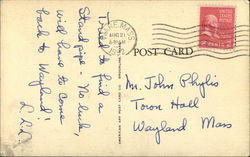 Tried to find a
Standpipe - No luck,
will have to come
back to Wayland!
MASS
AUG 21
POST CARD
2 CENTS 2
Mr. John Phylis
Town Hall
Wayland Mass